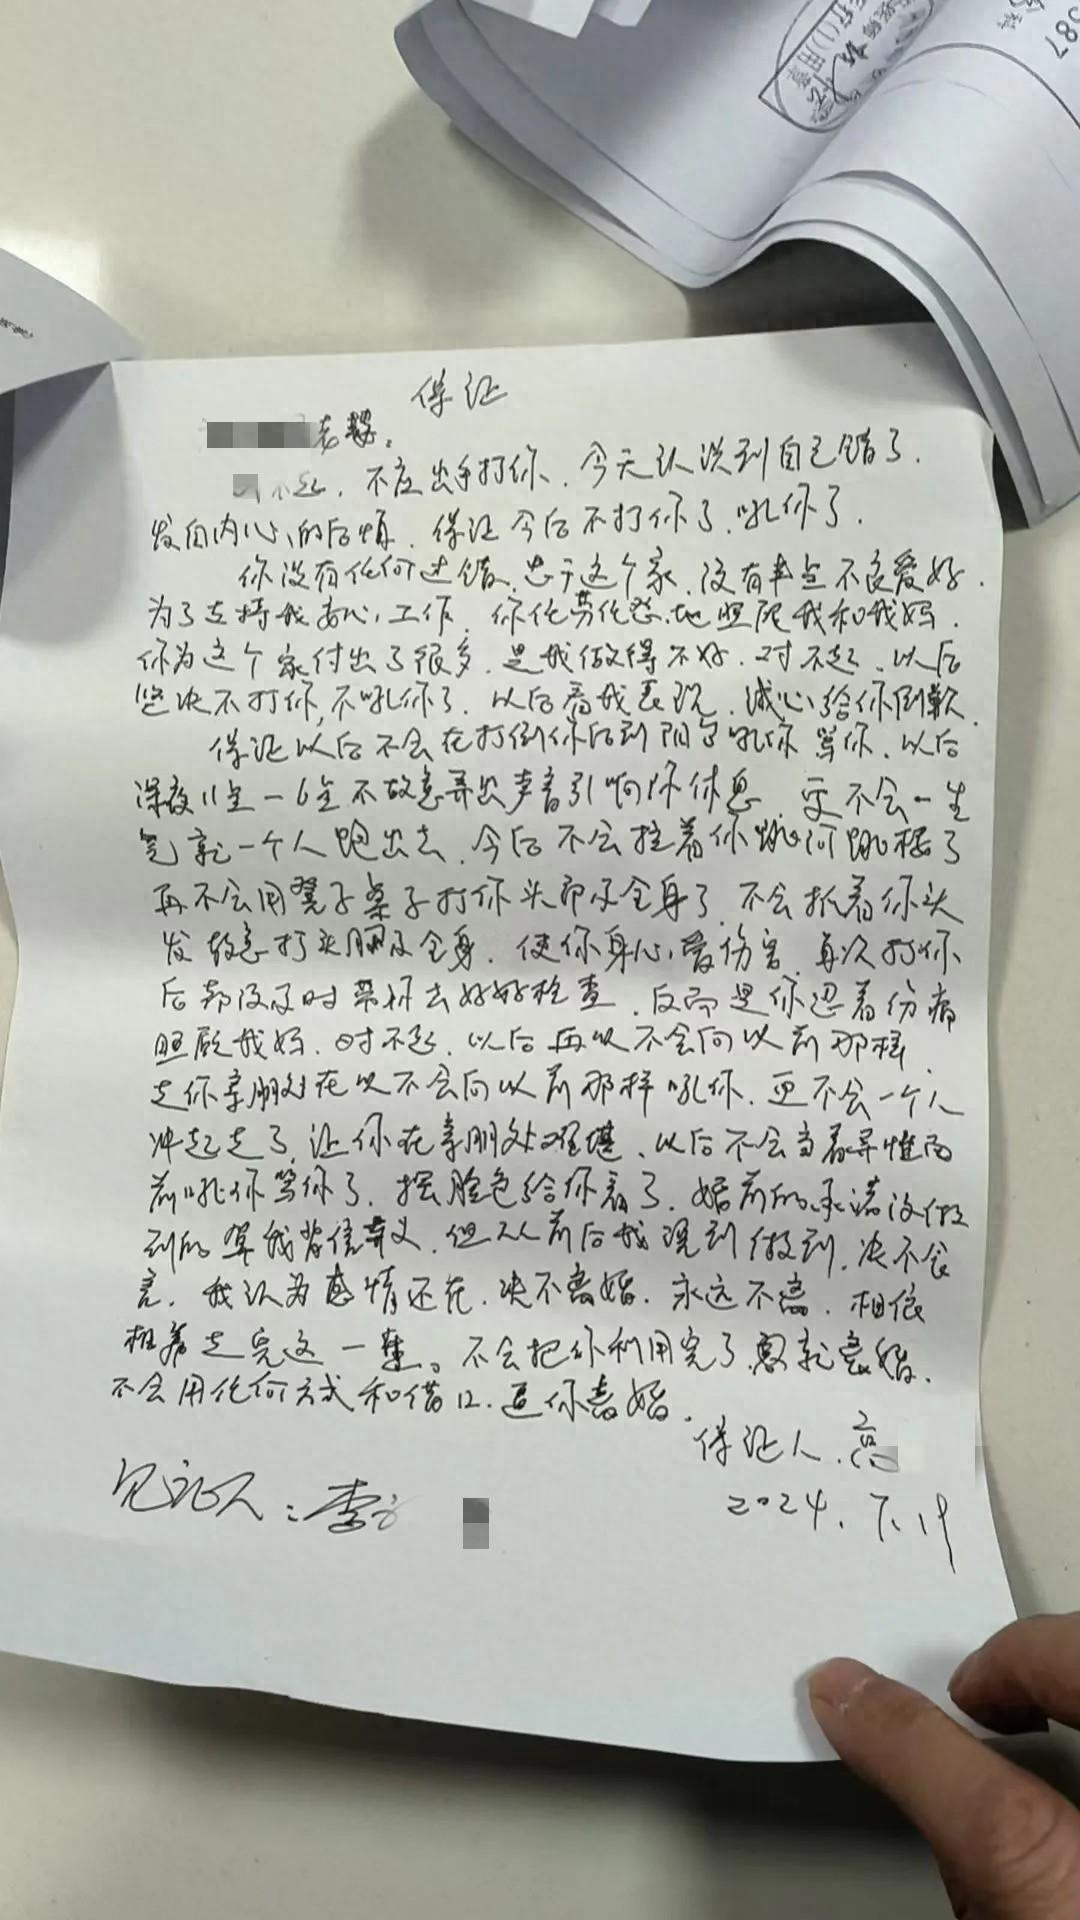 587
保证
老婆。
不起，不应出手打你、今天认识到自己错了．
发自内心的后悔．保证今后不打你了．吼你了．
你没有任何过错、忠于这个家、没有半点不良爱好．
为了支持我安心工作．你任劳任怨地照顾我和我妈．
你为这个家付出了很多．是我做得不好．对不起．以后
坚决不打你,不吼你了．以后看我表现．诚心给你倒歉．
保证以后不会在打倒你后到阳台吼你骂你．以后
深夜11点一6点不故意弄出声音引响你休息．更不会一生
气就一个人跑出去．今后不会拉着你跳河跳楼了
再不会用凳子桌子打你头部及全身了．不会抓着你头
发故意打头脑及全身．使你身心受伤害．每次打你
后都没及时带你去好好检查．反而是你忍着伤痛
照顾我妈．对不起．以后再以不会向以前那样
走你亲朋处在以不会向以前那样吼你．更不会一个人
冲起走了．让你在亲朋处难堪．以后不会当着弄惟面
前吼你骂你了．摆脸色给你看了．婚前的承诺没做
到的算我背信弃义．但从前后我说到做到．决不食
言．我认为感情还在．决不离婚．永远不离．相依
相靠走完这一辈。不会把你利用完了 就离婚．
不会用任何方式和借口．逼你离婚．
保证人．高
见证人：李
2024.7.19